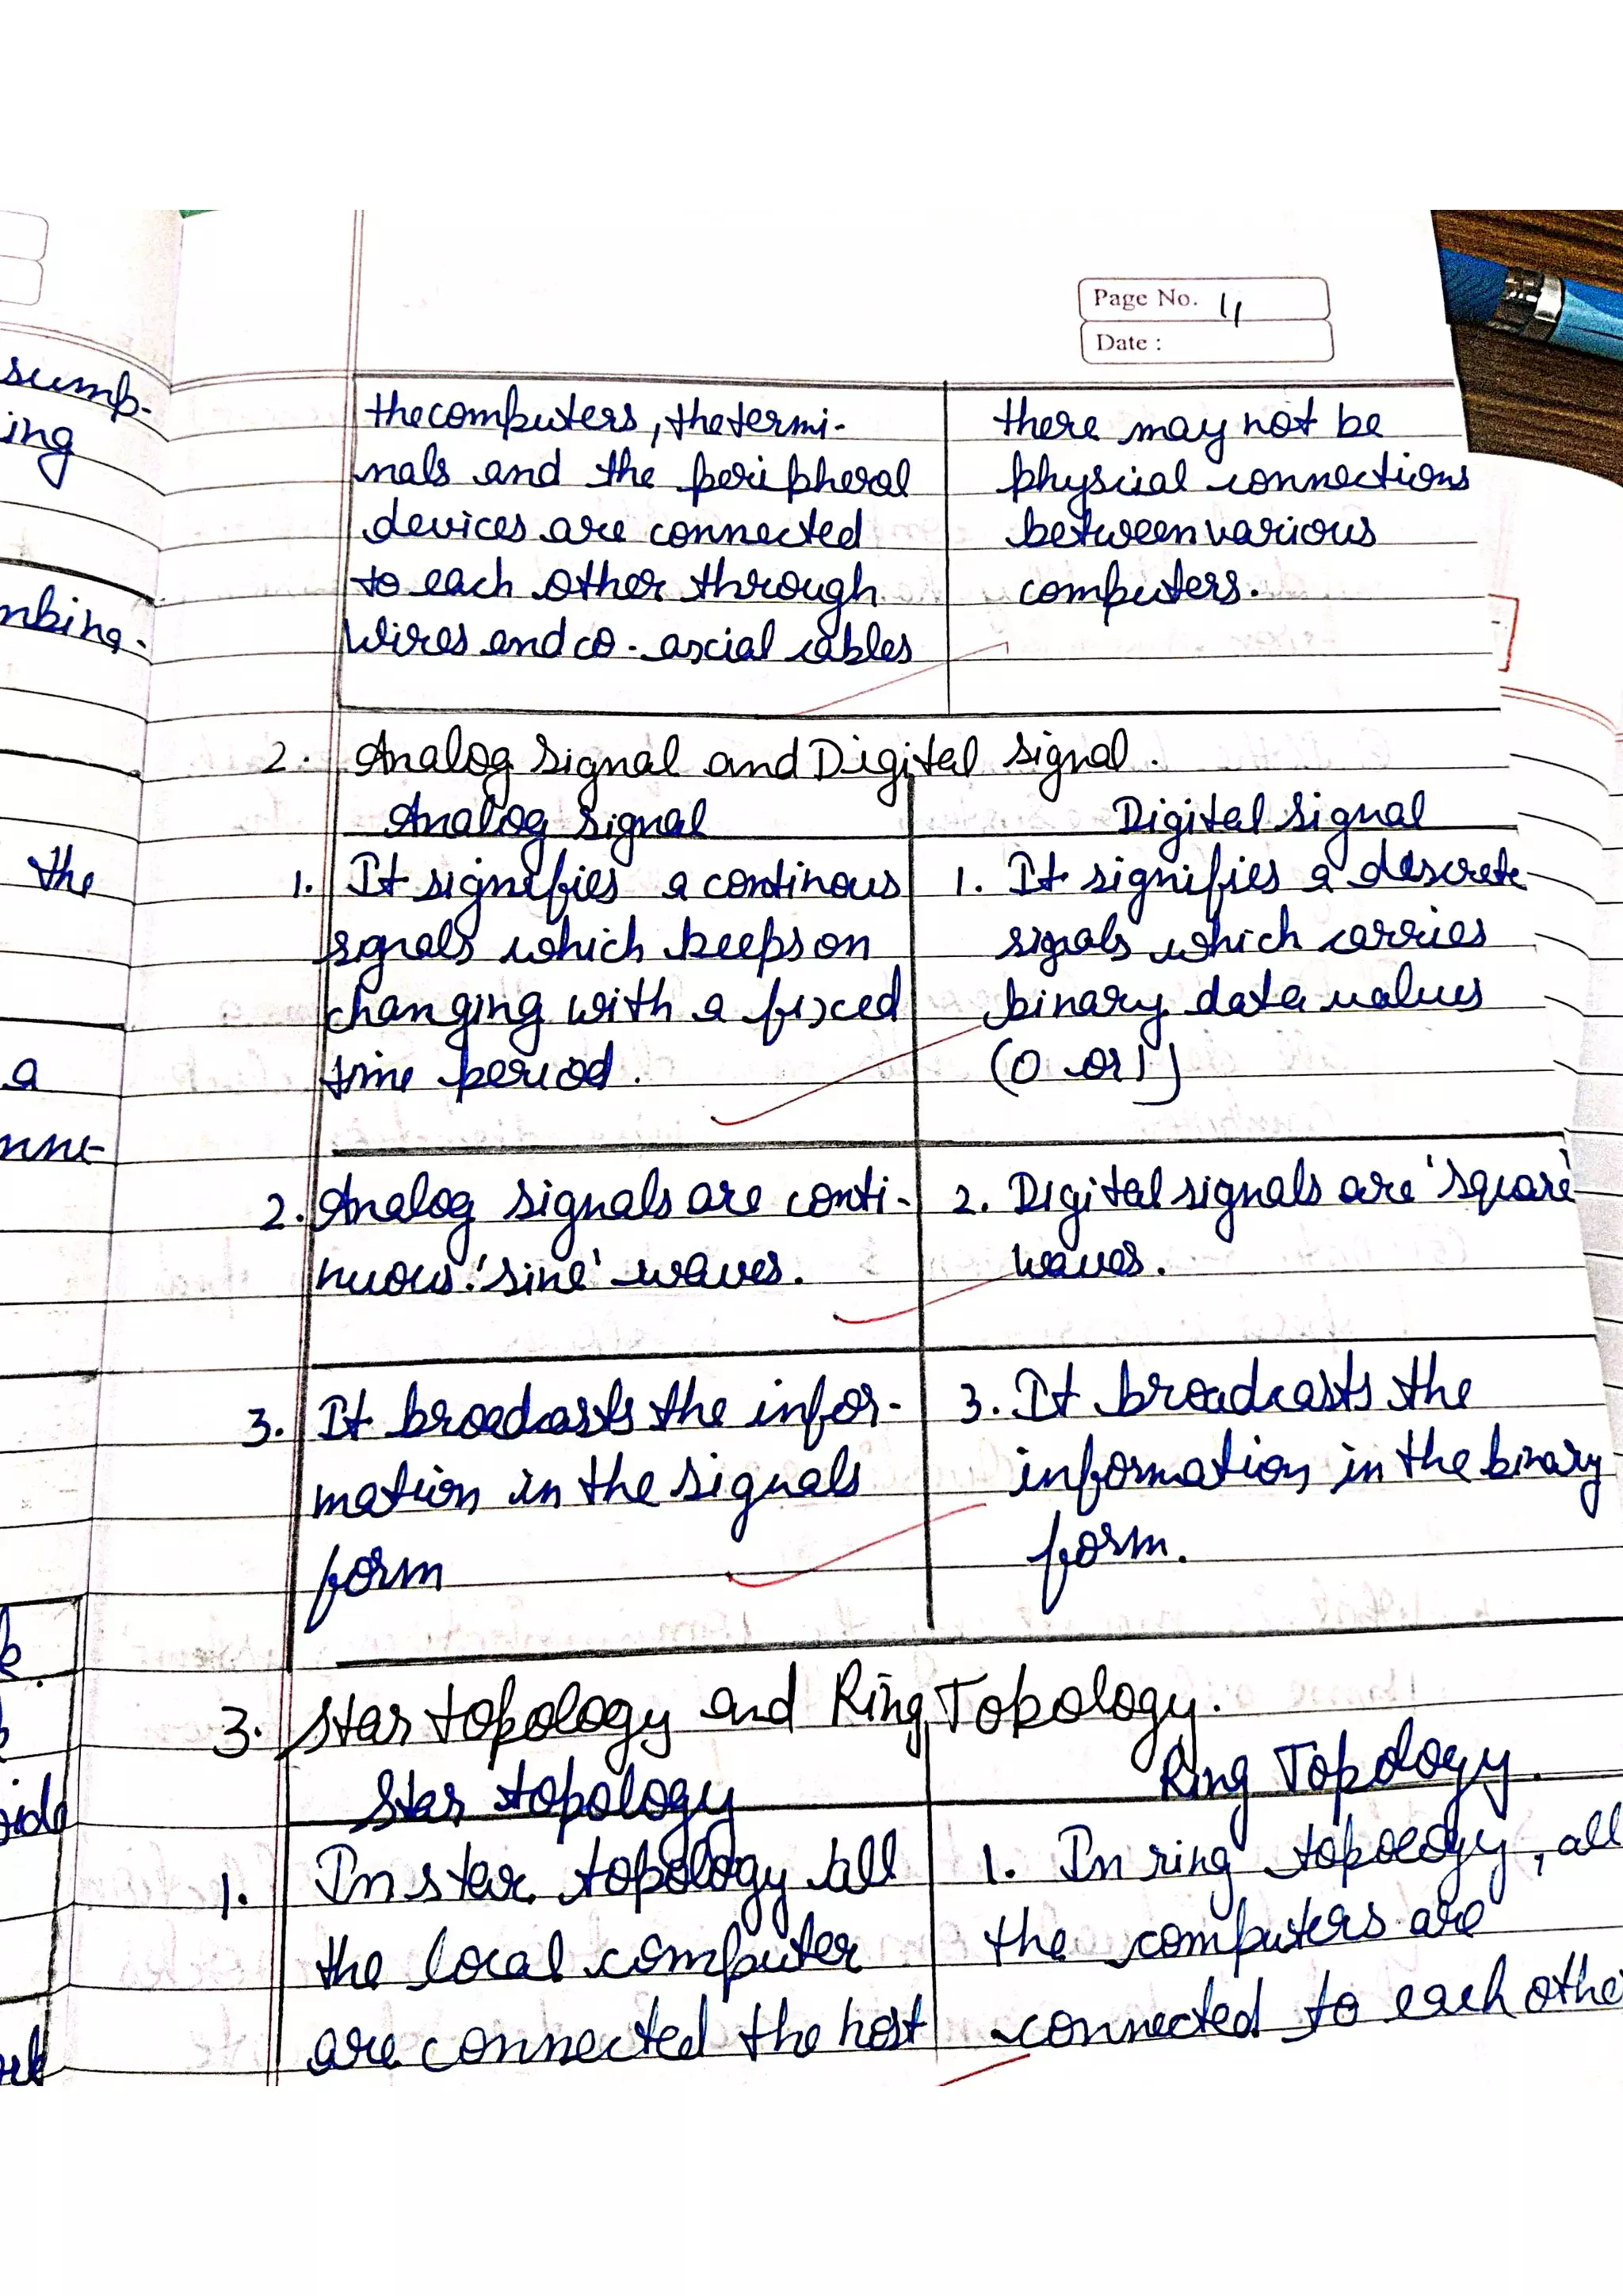 Page No. 4
Date :
sump-
ing
nbing.
the
a
nne-
thecomputers, thetermi-
nals and the peripheral
devices are connected
to each other through
wires and co-axcial cables
there may not be
physcial connections
between various
computers.
2. Analog signal and Digital signal.
Analog signal
1. It signifies a continous
signals which keeps on
changing with a fixced
time period.
Digital signal
1. It signifies a descrete
signals which carries
binary data values
(0 or 1)
2. Analog signals are conti-
nuous 'sine' waves.
2. Digital signals are 'square'
waves.
3. It broadcasts the infor-
mation in the signals
form
3. It broadcasts the
information in the binary
form.
3. Star topology and Ring Topology.
Star topology
1. In star topology all
the local computer
are connected the host
Ring Topology.
1. In ring topology, all
the computers are
connected to each othe